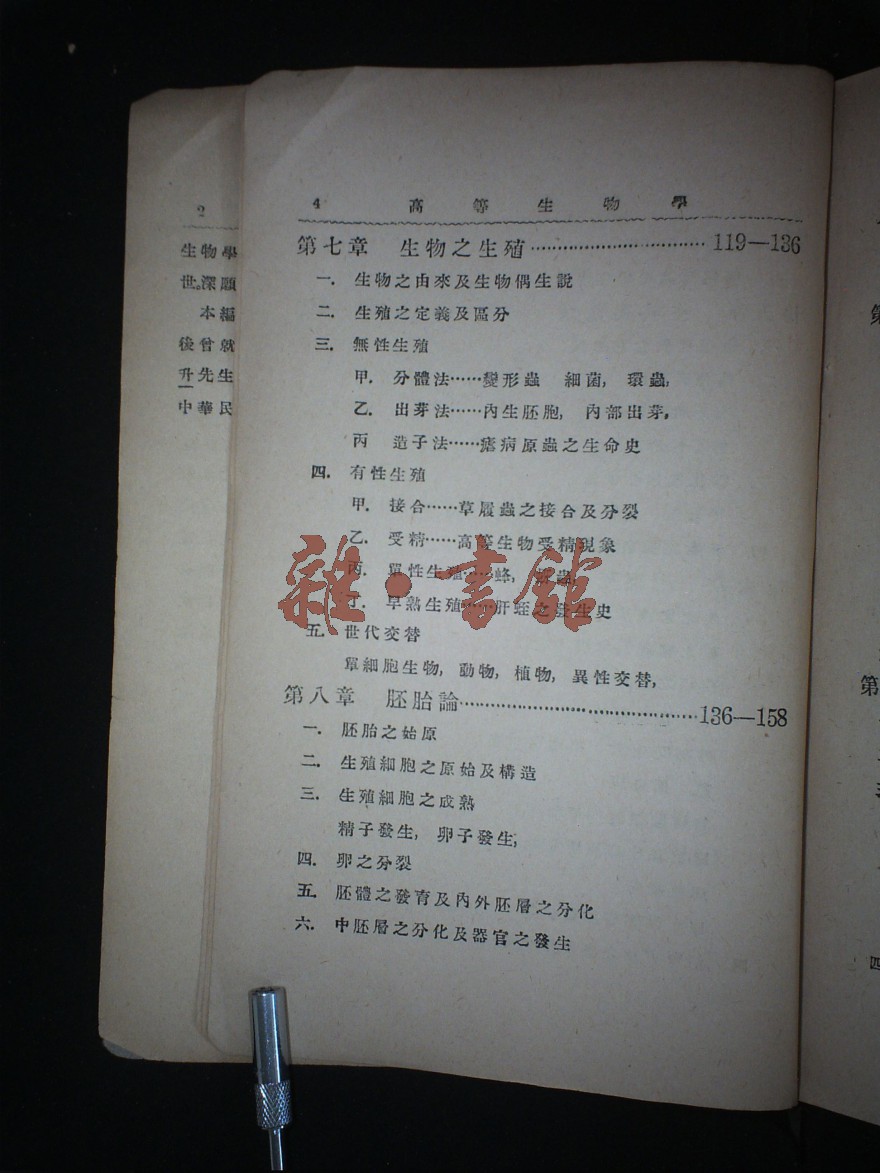 4 高等生物學
第七章 生物之生殖……………………119—136
一. 生物之由來及生物偶生說
二. 生殖之定義及區分
三. 無性生殖
甲. 分體法……變形蟲 細菌, 環蟲,
乙. 出芽法……內生胚胞, 內部出芽,
丙 造子法……瘧病原蟲之生命史
四. 有性生殖
甲. 接合……草履蟲之接合及分裂
乙. 受精……高等生物受精現象
丙. 單性生殖……蜂, 蟲,
丁. 早熟生殖……肝蛭之發生史
五. 世代交替
單細胞生物, 動物, 植物, 異性交替,
第八章 胚胎論……………………136—158
一. 胚胎之始原
二. 生殖細胞之原始及構造
三. 生殖細胞之成熟
精子發生, 卵子發生,
四. 卵之分裂
五. 胚體之發育及內外胚層之分化
六. 中胚層之分化及器官之發生
2
生物學
世。深願
本編
後曾就
升先生
中華民
雜·書館
第
第
四